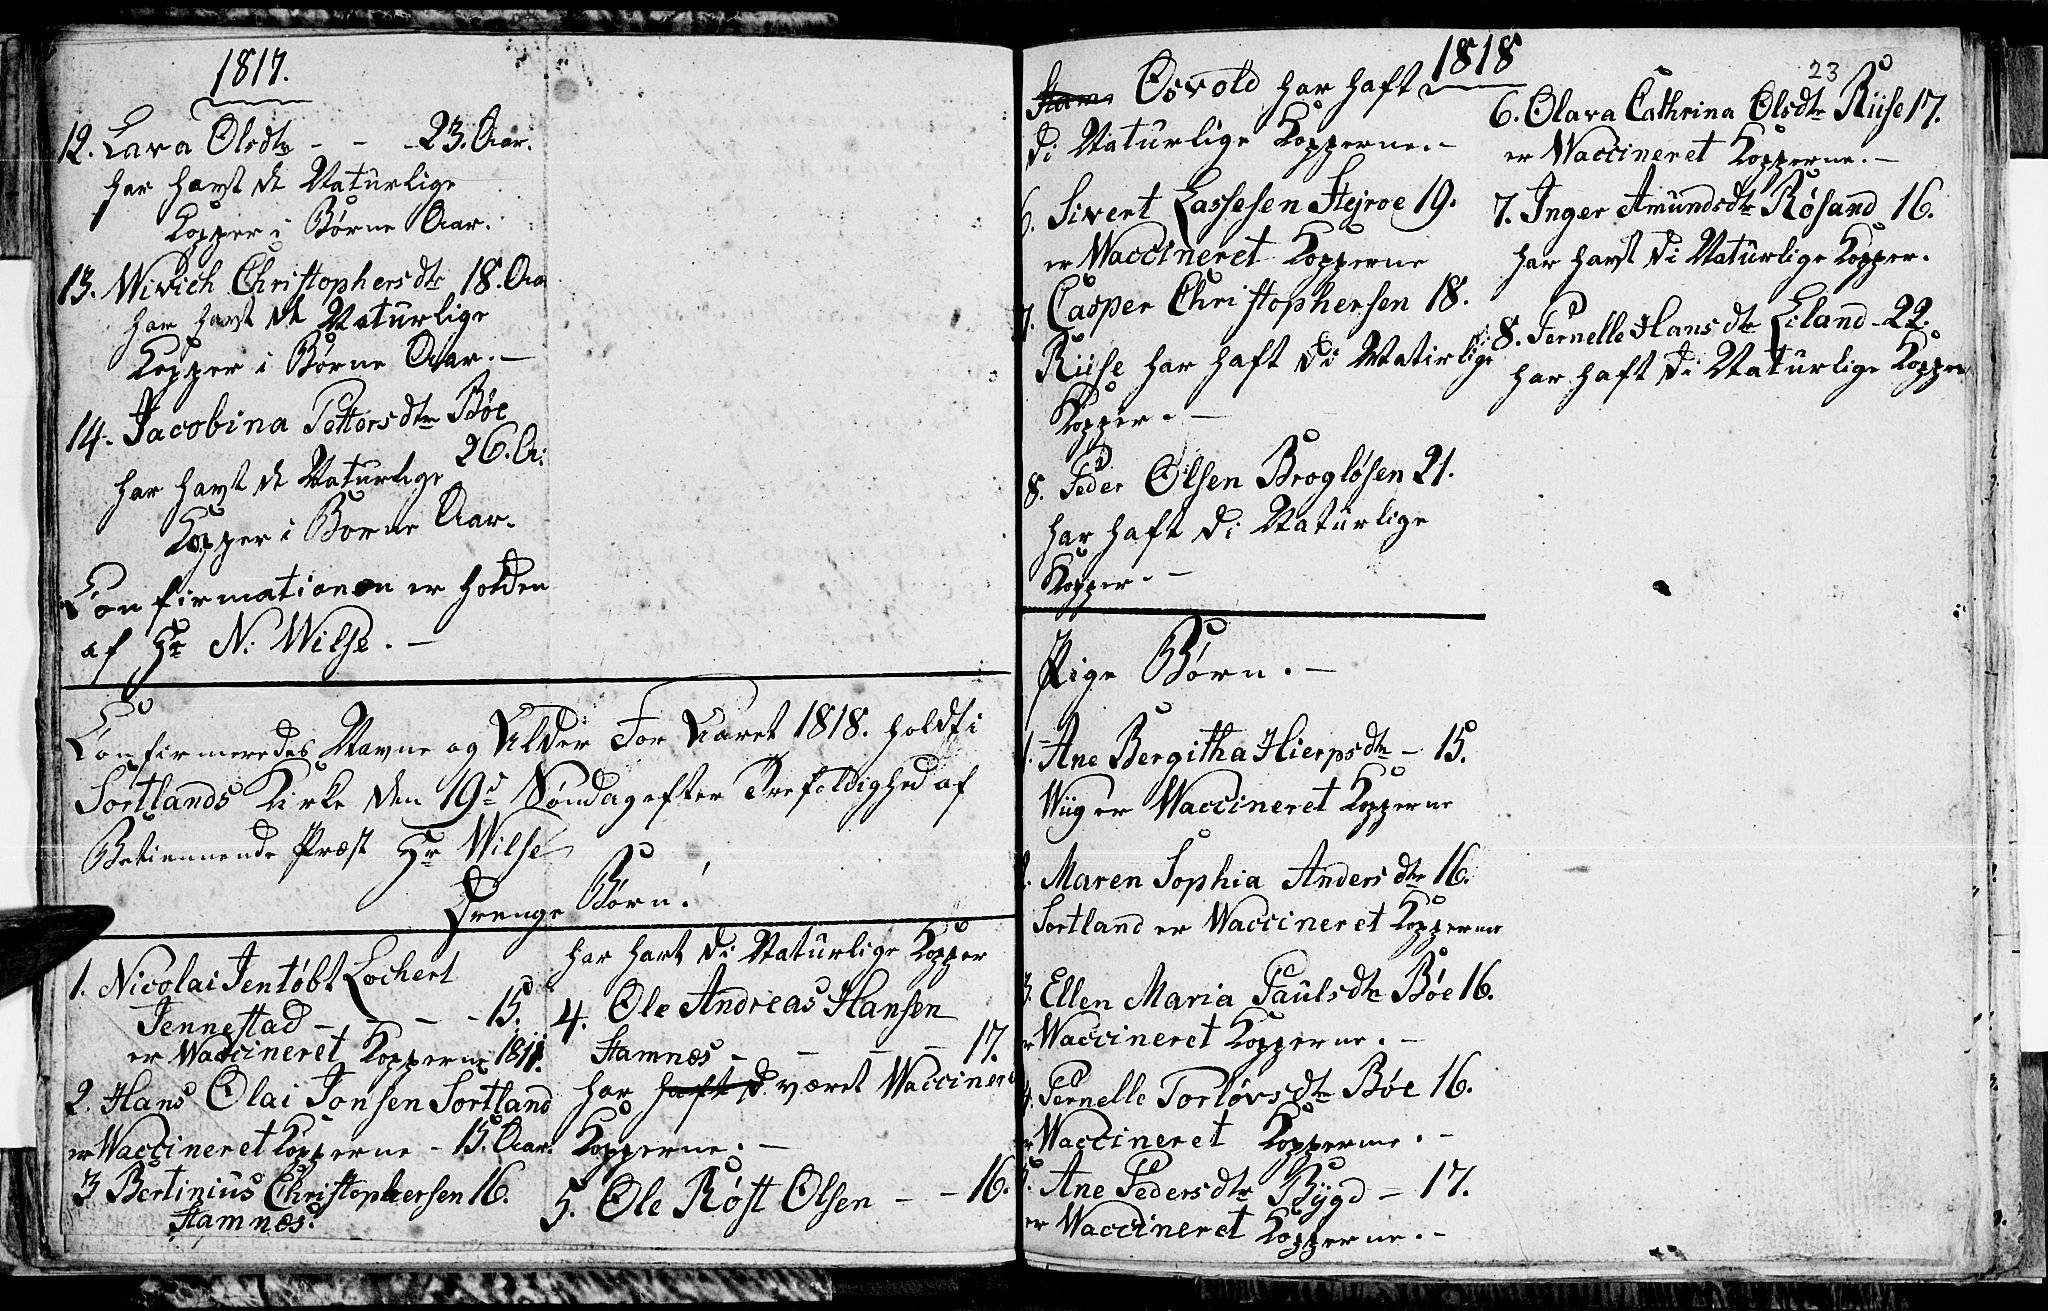 1817.
12. Lava Olsdtr - - - 23. Aar.
har havt de Naturlige
Kopper i Børne Aar.
13. Wivich Christophersdtr 18. Aar
har havt de Naturlige
Kopper i Børne Aar. -
14. Jacobina Pettersdtr Bøe
26. A:
har havt de Naturlige
Kopper i Børne Aar.
Confirmationen er holden
af Hr N. Wilse. -
Confirmeredes Navne og Alder For Aaret 1818. holdt i
Sortlands Kirke den 19de Søndag efter Trefoldighed af
Betiennende Præst Hr Wilse
Drenge Børn.
1. Nicolai Jentøbt Lochert
Jennestad - - - - 15.
er Waccineret Kopperne 1811.
2. Hans Olai Jonsen Sortland
er Waccineret Kopperne - 15. Aar.
3 Bertinius Christophersen 16.
Stamnæs.
har havt di Naturlige Kopper
4. Ole Andreas Hansen
Stamnæs - - - - 17.
har haft d været Waccineret
Kopperne. -
5. Ole Røst Olsen - - 16.
1818
23
Stam Osvold har haft
di Naturlige Kopperne. -
6. Sivert Lassesen Stejroe 19.
er Waccineret Kopperne
7. Casper Christophersen 18.
Riise har haft di Natirlige
Kopper. -
8. Peder Olsen Brogløsen 21.
har haft di Naturlige
Kopper. -
Pige Børn. -
1. Ane Bergitha Hierpsdtr - 15.
Wiig er Waccineret Kopperne
2. Maren Sophia Andersdtr 16.
Sortland er Waccineret Kopperne
3. Ellen Maria Paulsdtr Bøe 16.
er Waccineret Kopperne. -
4. Pernelle Torløvsdtr Bøe 16.
er Waccineret Kopperne. -
5. Ane Pedersdtr Bygd - 17.
er Waccineret Kopperne. -
6. Olava Cathrina Olsdtr Riise 17.
er Waccineret Kopperne. -
7. Inger Amundsdtr Røsand 16.
har havt di Naturlige Kopper.
8. Pernelle Hansdtr Eiland - 22.
har haft di Naturlige Kopper